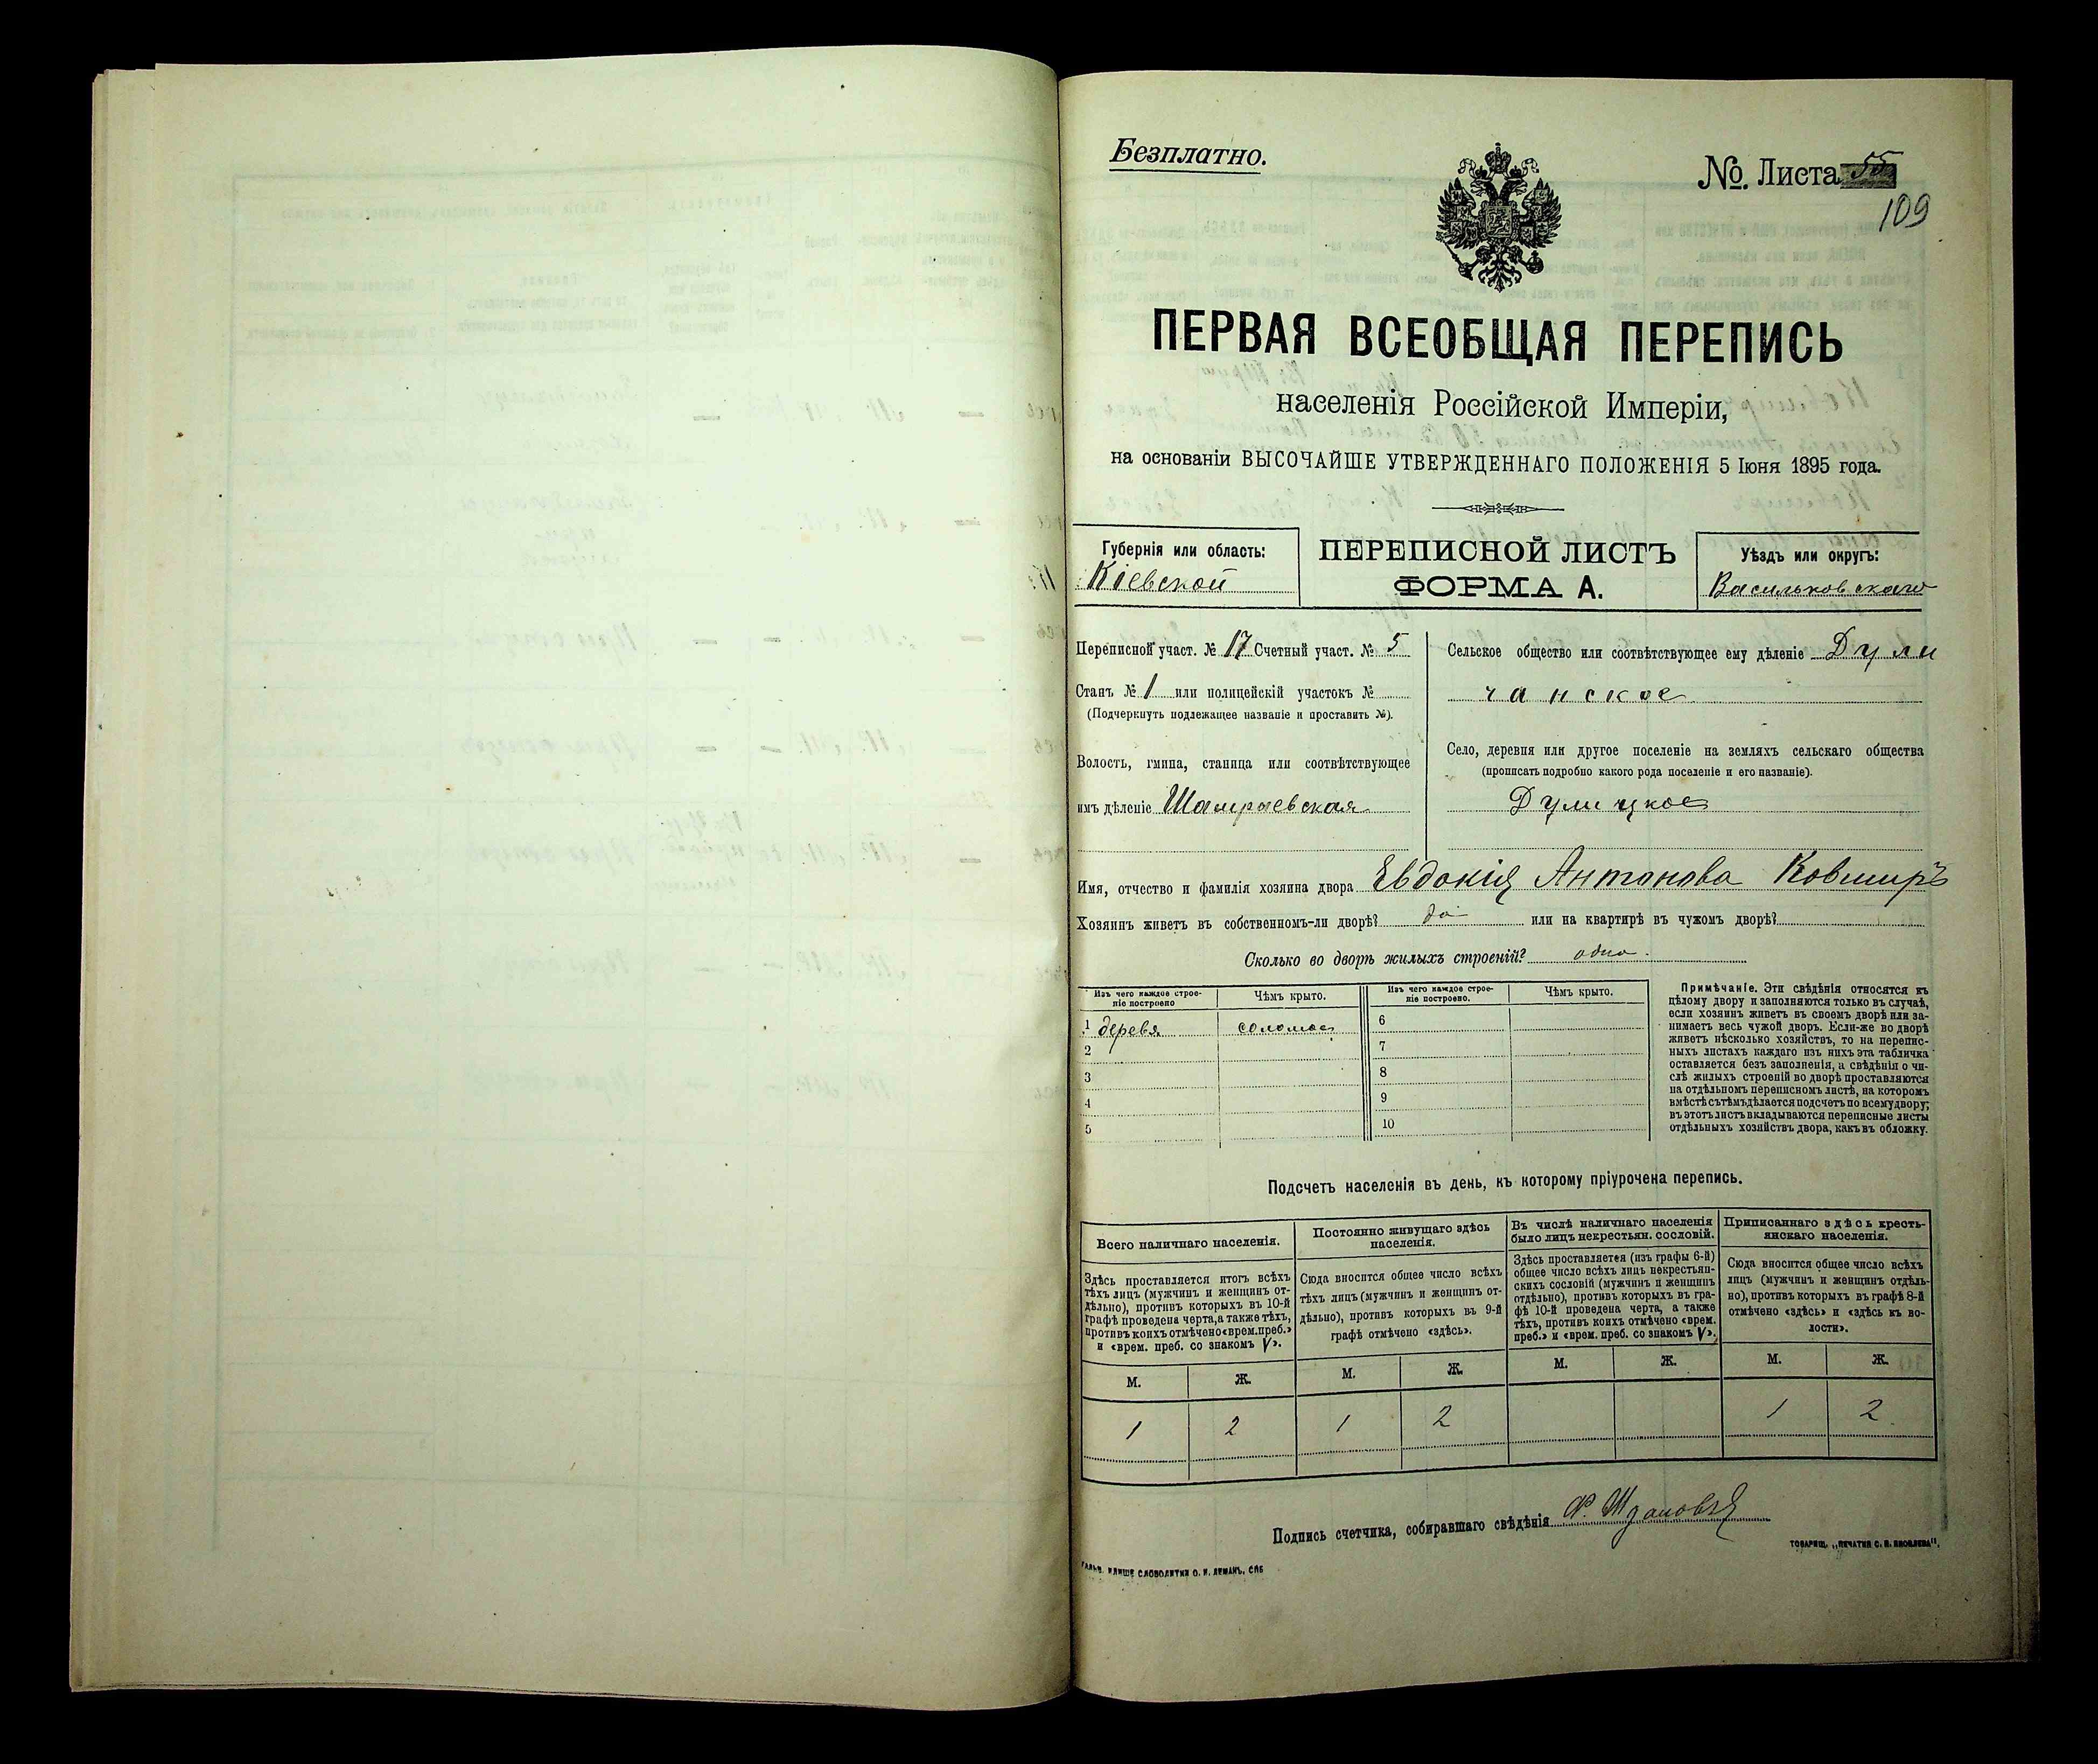 Безплатно.
№ Листа 55
109
ПЕРВАЯ ВСЕОБЩАЯ ПЕРЕПИСЬ
населенія Россійской Имперіи,
на основаніи ВЫСОЧАЙШЕ УТВЕРЖДЕННАГО ПОЛОЖЕНІЯ 5 Іюня 1895 года.
Губернія или область:
Кіевской
ПЕРЕПИСНОЙ ЛИСТЪ
ФОРМА А.
Уѣздъ или округъ:
Васильковскаго
Переписной участ. № 17 Счетный участ. № 5
Станъ № 1 или полицейскій участокъ №
(Подчеркнуть подлежащее названіе и проставить №).
Волость, гмина, станица или соотвѣтствующее
имъ дѣленіе Шамраевская
Сельское общество или соотвѣтствующее ему дѣленіе Дули
чанское
Село, деревня или другое поселеніе на земляхъ сельскаго общества
(прописать подробно какого рода поселеніе и его названіе).
Дулицкое
Имя, отчество и фамилія хозяина двора Евдокія Антонова Ковширъ
Хозяинъ живетъ въ собственномъ-ли дворѣ? да или на квартирѣ въ чужомъ дворѣ?
Сколько во дворѣ жилыхъ строеній? одно.
Изъ чего каждое строе-
ніе построено
Чѣмъ крыто.
Изъ чего каждое строе-
ніе построено.
Чѣмъ крыто.
1 деревя соломое
2
3
4
5
6
7
8
9
10
Примѣчаніе. Эти свѣдѣнія относятся къ
цѣлому двору и заполняются только въ случаѣ,
если хозяинъ живетъ въ своемъ дворѣ или за-
нимаетъ весь чужой дворъ. Если-же во дворѣ
живетъ нѣсколько хозяйствъ, то на перепис-
ныхъ листахъ каждаго изъ нихъ эта табличка
оставляется безъ заполненія, а свѣдѣнія о чи-
слѣ жилыхъ строеній во дворѣ проставляются
на отдѣльномъ переписномъ листѣ, на которомъ
вмѣстѣ съ тѣмъ дѣлается подсчетъ по всему двору;
въ этотъ листъ вкладываются переписные листы
отдѣльныхъ хозяйствъ двора, какъ въ обложку.
Подсчетъ населенія въ день, къ которому пріурочена перепись.
Всего наличнаго населенія.
Здѣсь проставляется итогъ всѣхъ
тѣхъ лицъ (мужчинъ и женщинъ от-
дѣльно), противъ которыхъ въ 10-й
графѣ проведена черта, а также тѣхъ,
противъ коихъ отмѣчено «врем. преб.»
и «врем. преб. со знакомъ V».
Постоянно живущаго здѣсь
населенія.
Сюда вносится общее число всѣхъ
тѣхъ лицъ (мужчинъ и женщинъ от-
дѣльно), противъ которыхъ въ 9-й
графѣ отмѣчено «здѣсь».
Въ числѣ наличнаго населенія
было лицъ некрестьян. сословій.
Здѣсь проставляется (изъ графы 6-й)
общее число всѣхъ лицъ некрестьян-
скихъ сословій (мужчинъ и женщинъ
отдѣльно), противъ которыхъ въ гра-
фѣ 10-й проведена черта, а также
тѣхъ, противъ коихъ отмѣчено «врем.
преб.» и «врем. преб. со знакомъ V».
Приписаннаго здѣсь кресть-
янскаго населенія.
Сюда вносится общее число всѣхъ
лицъ (мужчинъ и женщинъ отдѣль-
но), противъ которыхъ въ графѣ 8-й
отмѣчено «здѣсь» и «здѣсь къ во-
лости».
М. Ж. М. Ж. М. Ж. М. Ж.
1 2 1 2 1 2
Подпись счетчика, собиравшаго свѣдѣнія
СЛОВОЛИТНИ О. И. ЛЕМАНЪ, СПБ
ТОВАРИЩ. „ПЕЧАТНЯ С. П. ЯКОВЛЕВА".